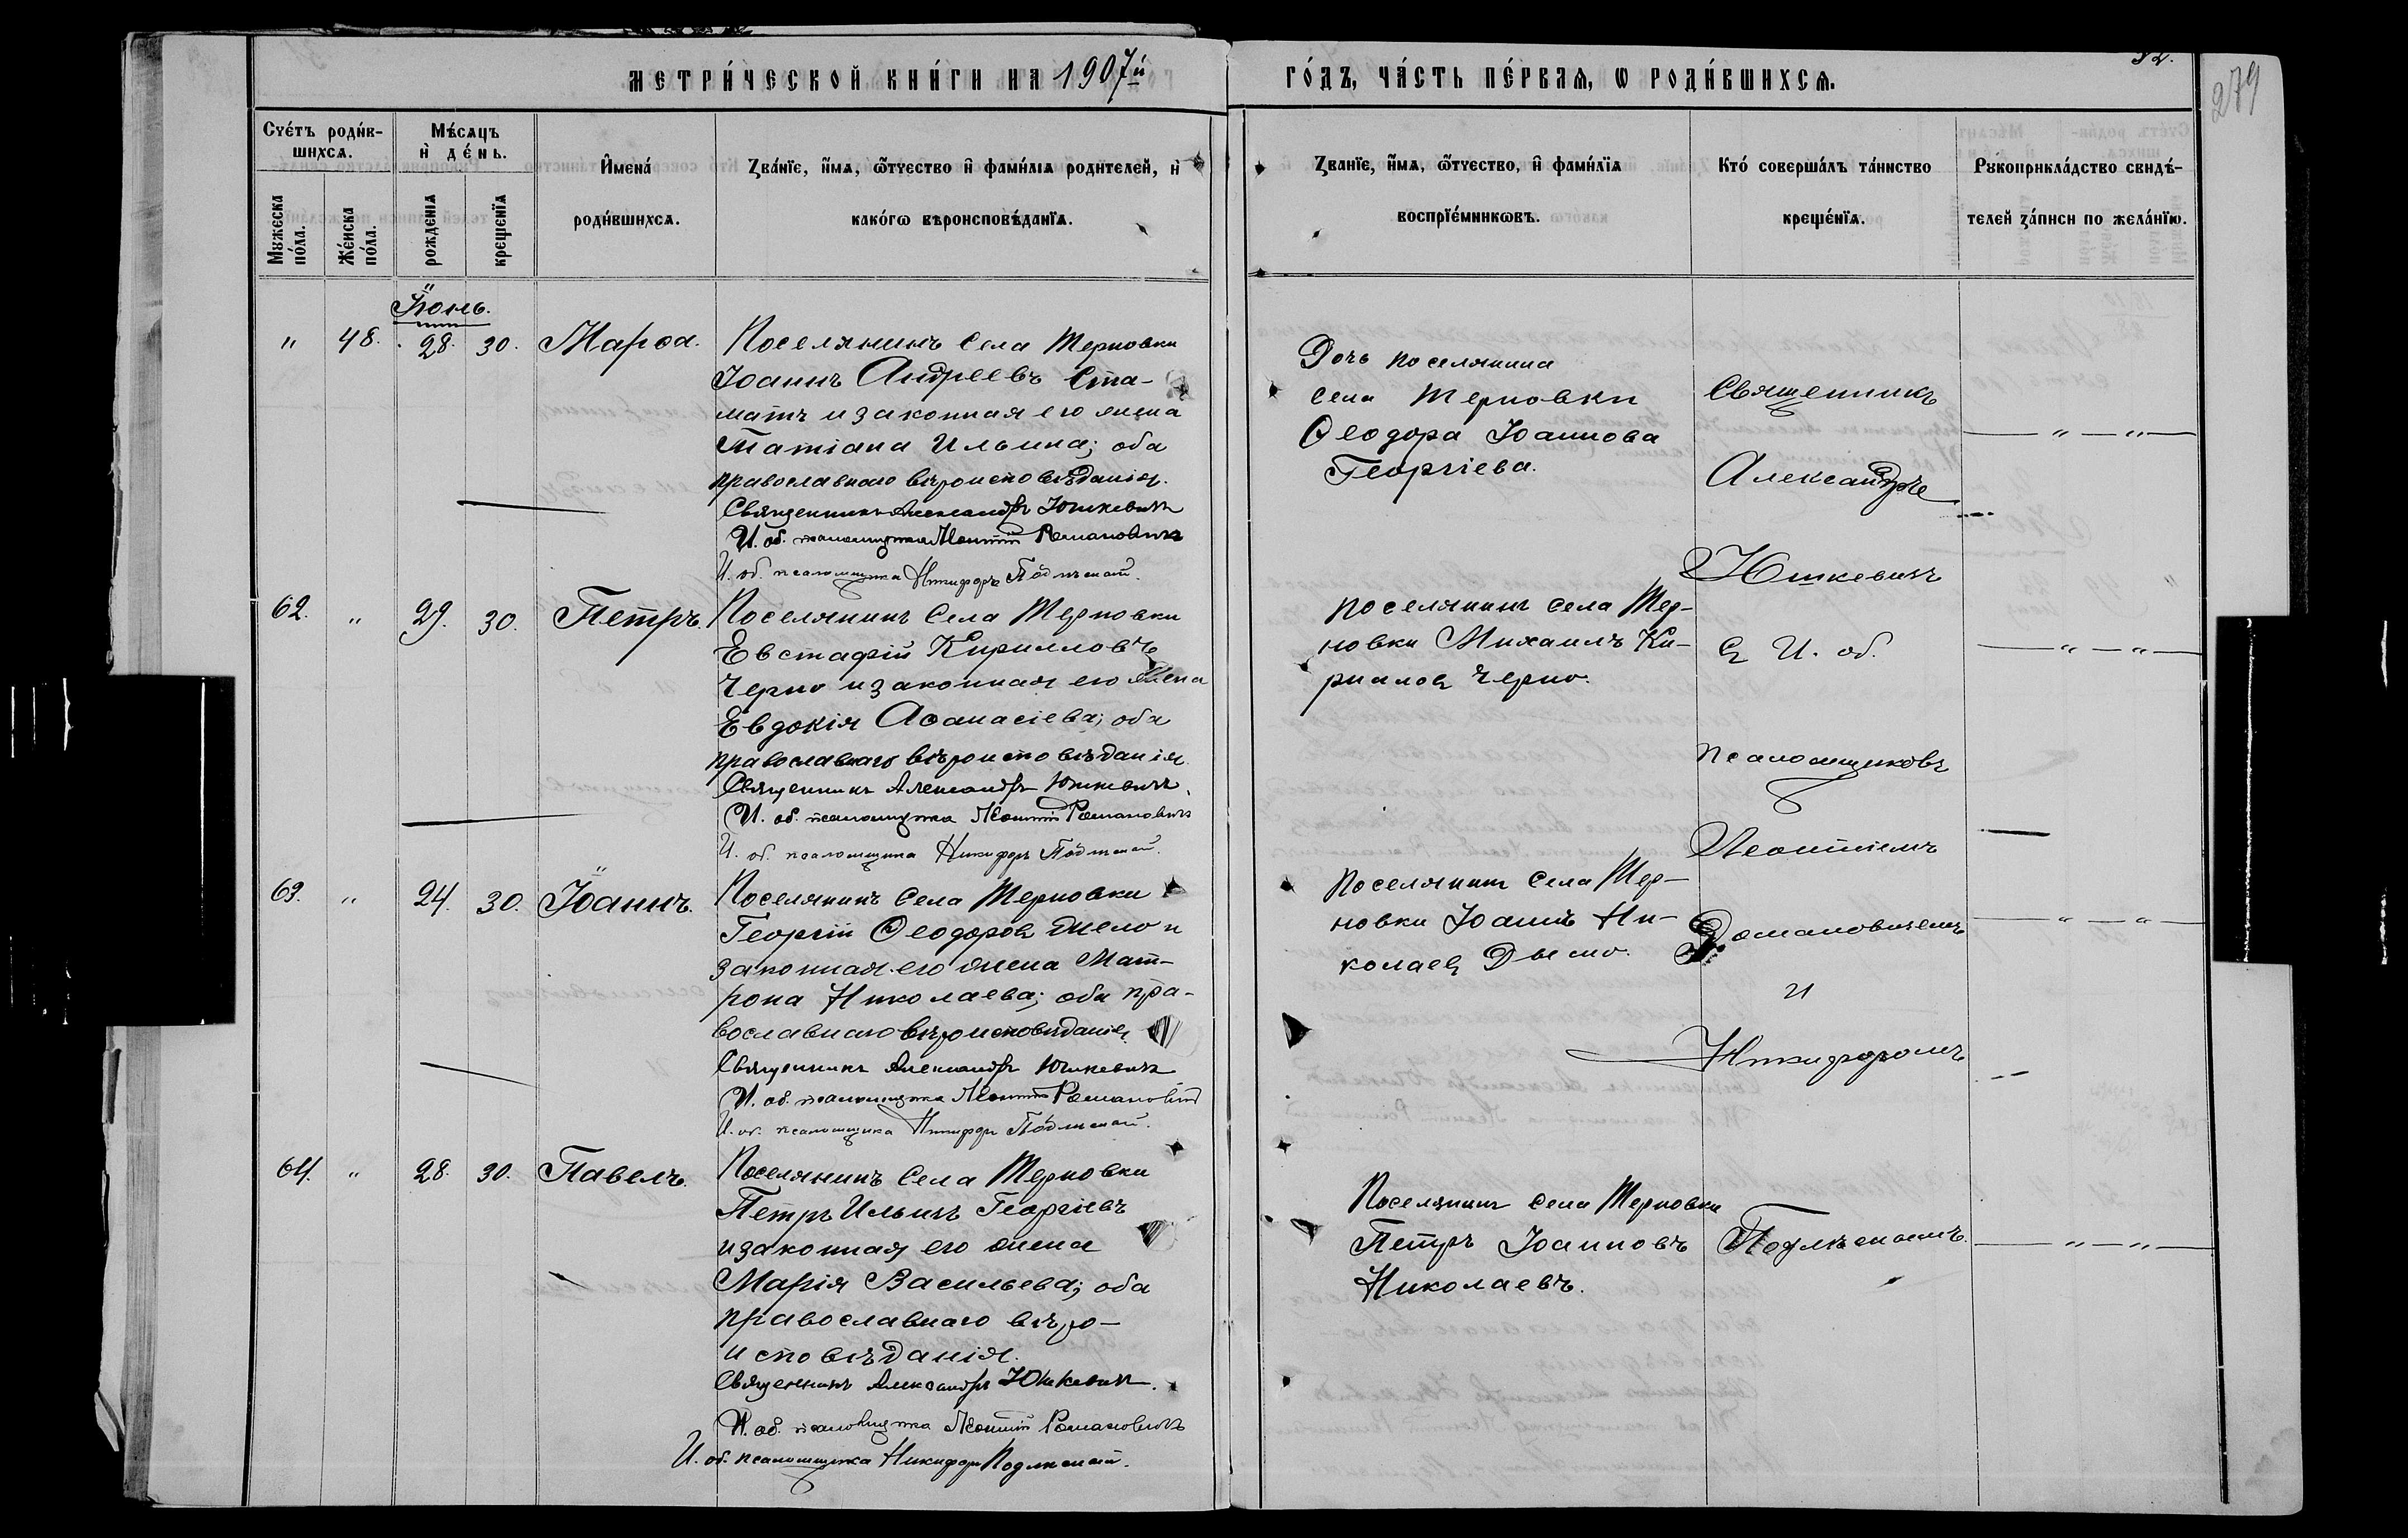 МЕТРИ́ЧЕСКОЙ КНИ́ГИ НА 1907й
ГО́ДЪ, ЧА́СТЬ ПЕ́РВАѦ, Ѡ РОДИ́ВШИХСѦ.
279
Сче́тъ роди́в-
шихсѧ.
Мꙋжеска
по́ла.
Же́нска
по́ла.
Мѣ́сѧцъ
и҆ де́нь.
рожденїѧ
крещенїѧ
И҆мена́
роди́вшихсѧ.
Зва́нїе, и҆́мѧ, ѻ҆́тчество и҆ фами́лїѧ родителей, и҆
како́гѡ вѣроисповѣ́данїѧ.
Зва́нїе, и҆́мѧ, ѻ҆́тчество, и҆ фами́лїѧ
воспрїе́мникѡвъ.
Кто́ соверша́лъ та́инство
креще́нїѧ.
Рꙋкоприкла́дство свидѣ́-
телей за́писи по жела́нїю.
Іюнь.
" 48. 28. 30. Марѳа.
Поселянинъ села Терновки
Іоаннъ Андреевъ Ста-
матъ и законная его жена
Татіана Ильина; оба
православнаго вѣроисповѣданія.
Священникъ Александръ Юшкевичъ
И. об. псаломщика Леонтій Романовичъ
И. об. псаломщика Никифоръ
Дочь поселянина
села Терновки
Ѳеодора Іоаннова
Георгіева.
Священникъ
Александръ
Юшкевичъ
съ И. об.
псаломщиковъ
Леонтіемъ
Романовичемъ
и
Никифоромъ
— " — " —
62. " 29. 30. Петръ.
Поселянинъ села Терновки
Евстафій Кирилловъ
Черно и законная его жена
Евдокія Аѳанасіева; оба
православнаго вѣроисповѣданія
Священникъ Александръ Юшкевичъ
И. об. псаломщика Леонтій Романовичъ
И. об. псаломщика Никифоръ
поселянинъ села Тер-
новки Михаилъ Ки-
риловъ Черно.
— " — " —
63. " 24. 30. Іоаннъ.
Поселянинъ села Терновки
Георгій Ѳеодоровъ и
законная его жена Мат-
рона Николаева; оба пра-
вославнаго вѣроисповѣданія
Священникъ Александръ Юшкевичъ
И. об. псаломщика Леонтій Романовичъ
И. об. псаломщика Никифоръ
Поселянинъ села Тер-
новки Іоаннъ Ни-
колаевъ Дымо.
— " — " —
64. " 28. 30. Павелъ.
Поселянинъ села Терновки
Петръ Ильинъ Георгіевъ
и законная его жена
Марія Васильева; оба
православнаго вѣро-
исповѣданія.
Священникъ Александръ Юшкевичъ.
И. об. псаломщика Леонтій Романовичъ
И. об. псаломщика Никифоръ
Поселянинъ села Терновки
Петръ Іоанновъ
Николаевъ.
— " — " —